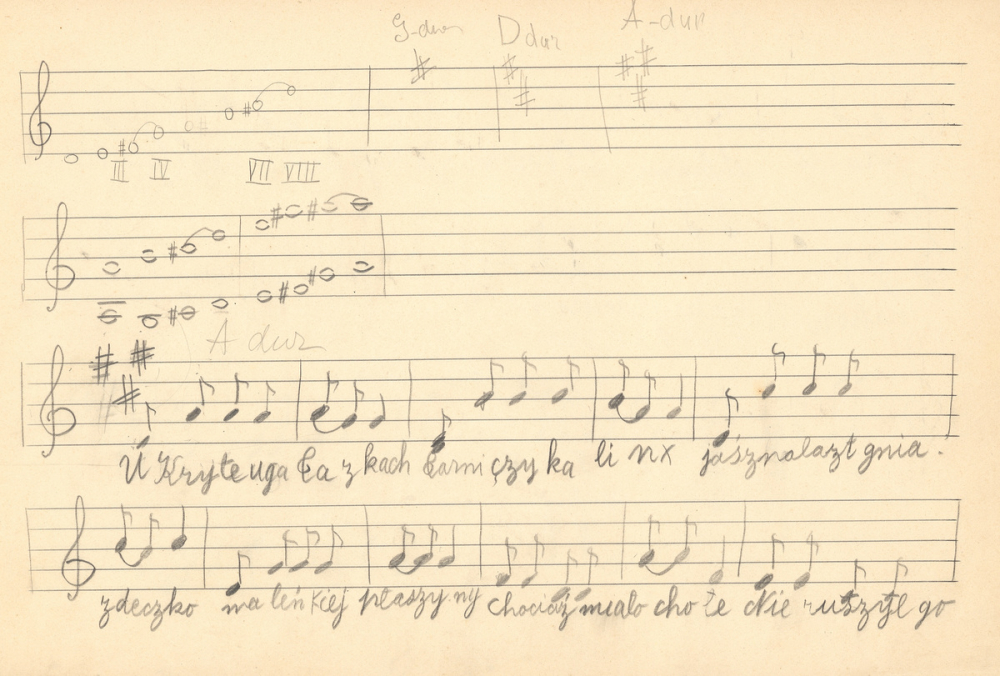 G-dur D dur A-dur
III IV VII VIII
A dur
U Kryte uga ła z kach tarni czy ka li nx jaśznalazł gnia.
zdeczko ma leń kiej ptaszy.ny chociaż miało cho te ckie ruszył go